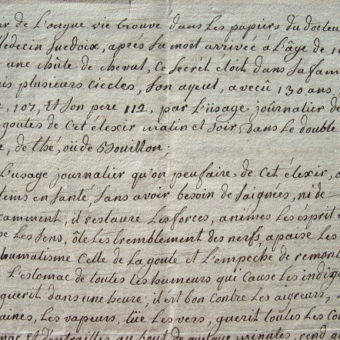 ur de Longue vie trouvé dans les papiers du docteur
édecin suedois, apres sa mort arrivée à l'âge de 10
une chûte de cheval, ce secret étoit dans sa fam
is plusieurs ciecles, son ayeul, a vecû 130 ans
, 107, Et son pere 112, par l'usage journalier de
goutes de Cet élexir matin et soir, dans le double
, de thé, oû de Bouillon:
L'usage journalier qu'on peu faire de Cet élixir, o
tems en santé, sans avoir besoin de saignées, ni de
camment, il restaure les forces, animes les esprit e
se les sens, ôte les tremblement des nerfs, apaise les
humatisme Celle de la goute et l'empeche de remont
L'estomac de toutes les humeurs qui cause les indig
guerit dans une heure, il est bon contre les aigreurs,
aines, les vapeurs, tüe les vers, guerit toutes les Co
mac et d'entrailles au bout de quelque minutes, rend g